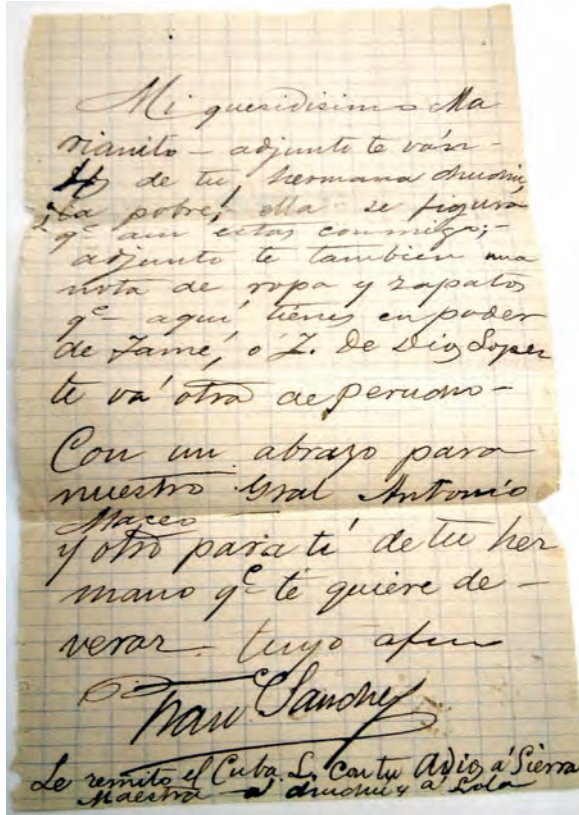 Mi queridisimo Ma
rianito – adjunto te ván –
de tu hermana
¡la pobre! ella se figura
qe aun estas conmigo; –
adjunto te tambien una
nota de ropa y zapatos
qe – aquí tienes en poder
de Jamé, o' J. De Dios Lopez
te va' otra de Perucho –
Con un abrazo para
nuestro Gral Antonio
Maceo
y otro para tí de tu her
mano qe te quiere de –
veras tuyo afmo
Sanchez
Le remito el Cuba L. con tu Adios a' Sierra
Maestra – a' y a' Lola